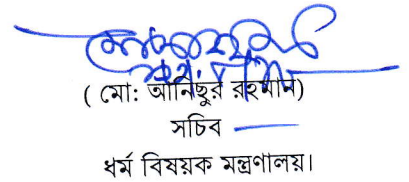 ( মো: আনিছুর রহমান)
সচিব
ধর্ম বিষয়ক মন্ত্রণালয়।